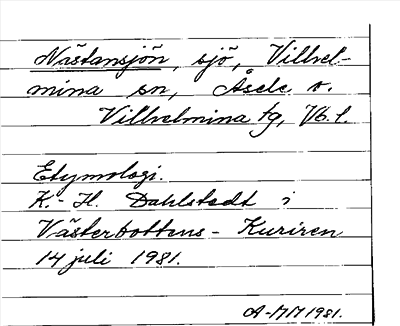 Nästansjön, sjö, Vilhel-
mina sn, Åsele
Vilhelmina tg, Vb. l.
Etymologi.
K.-H. Dahlstedt i
Västerbottens-Kuriren
14 juli 1981.
A-MM 1981.